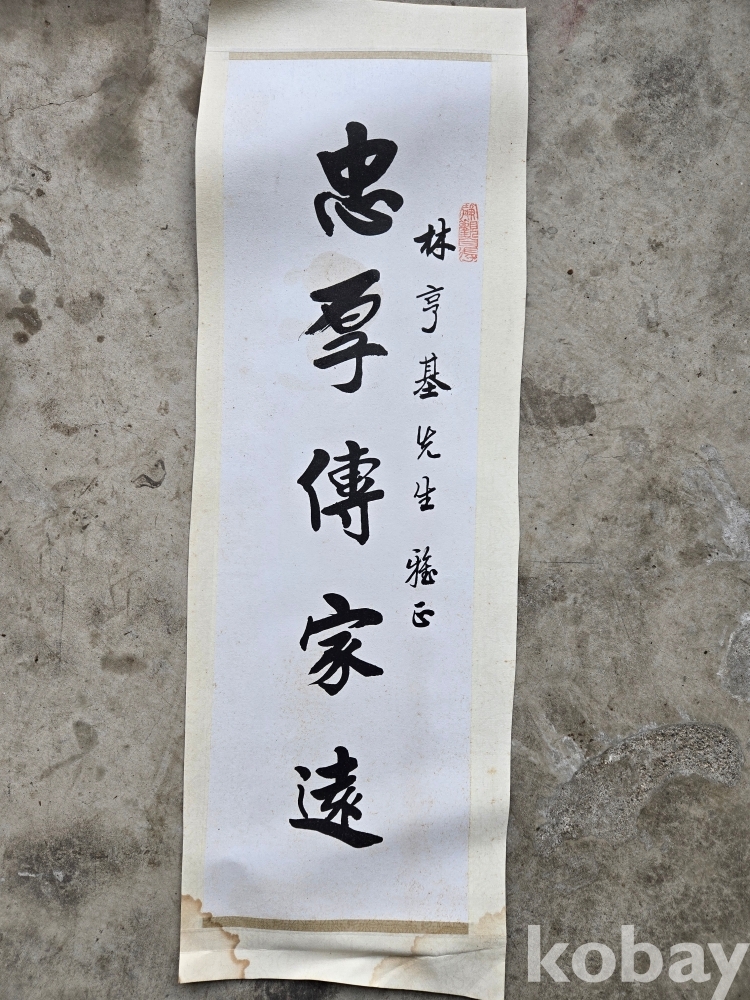 林亨基先生 雅正
忠厚傳家遠
kobay